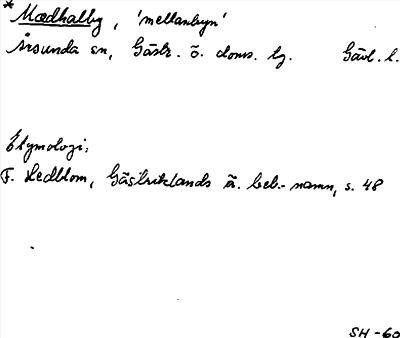 * Mædhalby, 'mellanbyn'
Årsunda sn, Gästr. ö. doms. tg. Gävl. l.
Etymologi:
F. Hedblom, Gästriklands ä. beb.-namn, s. 48
SH-60